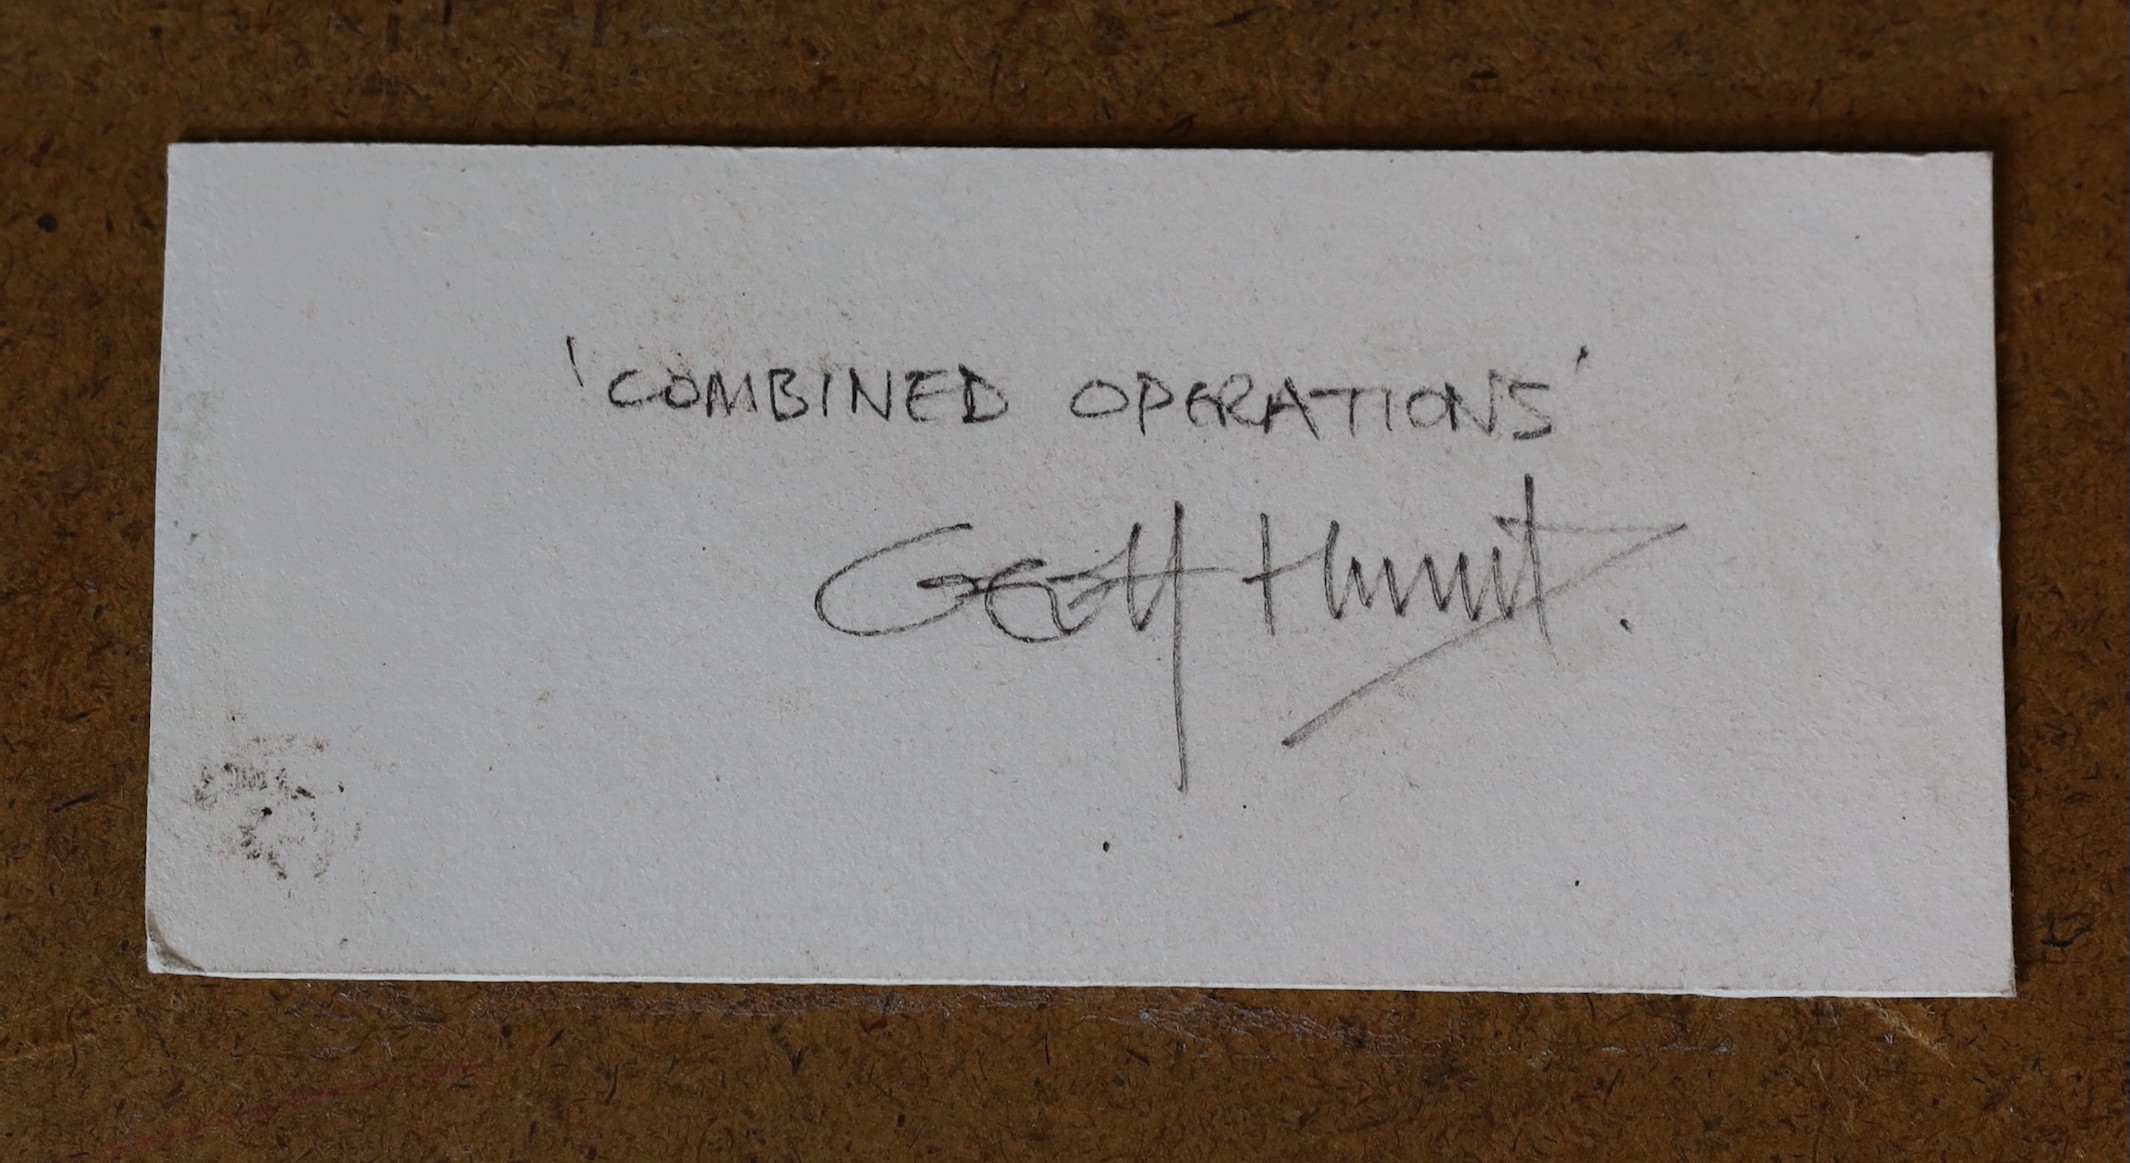 'COMBINED OPERATIONS'
Geoff Hunt.